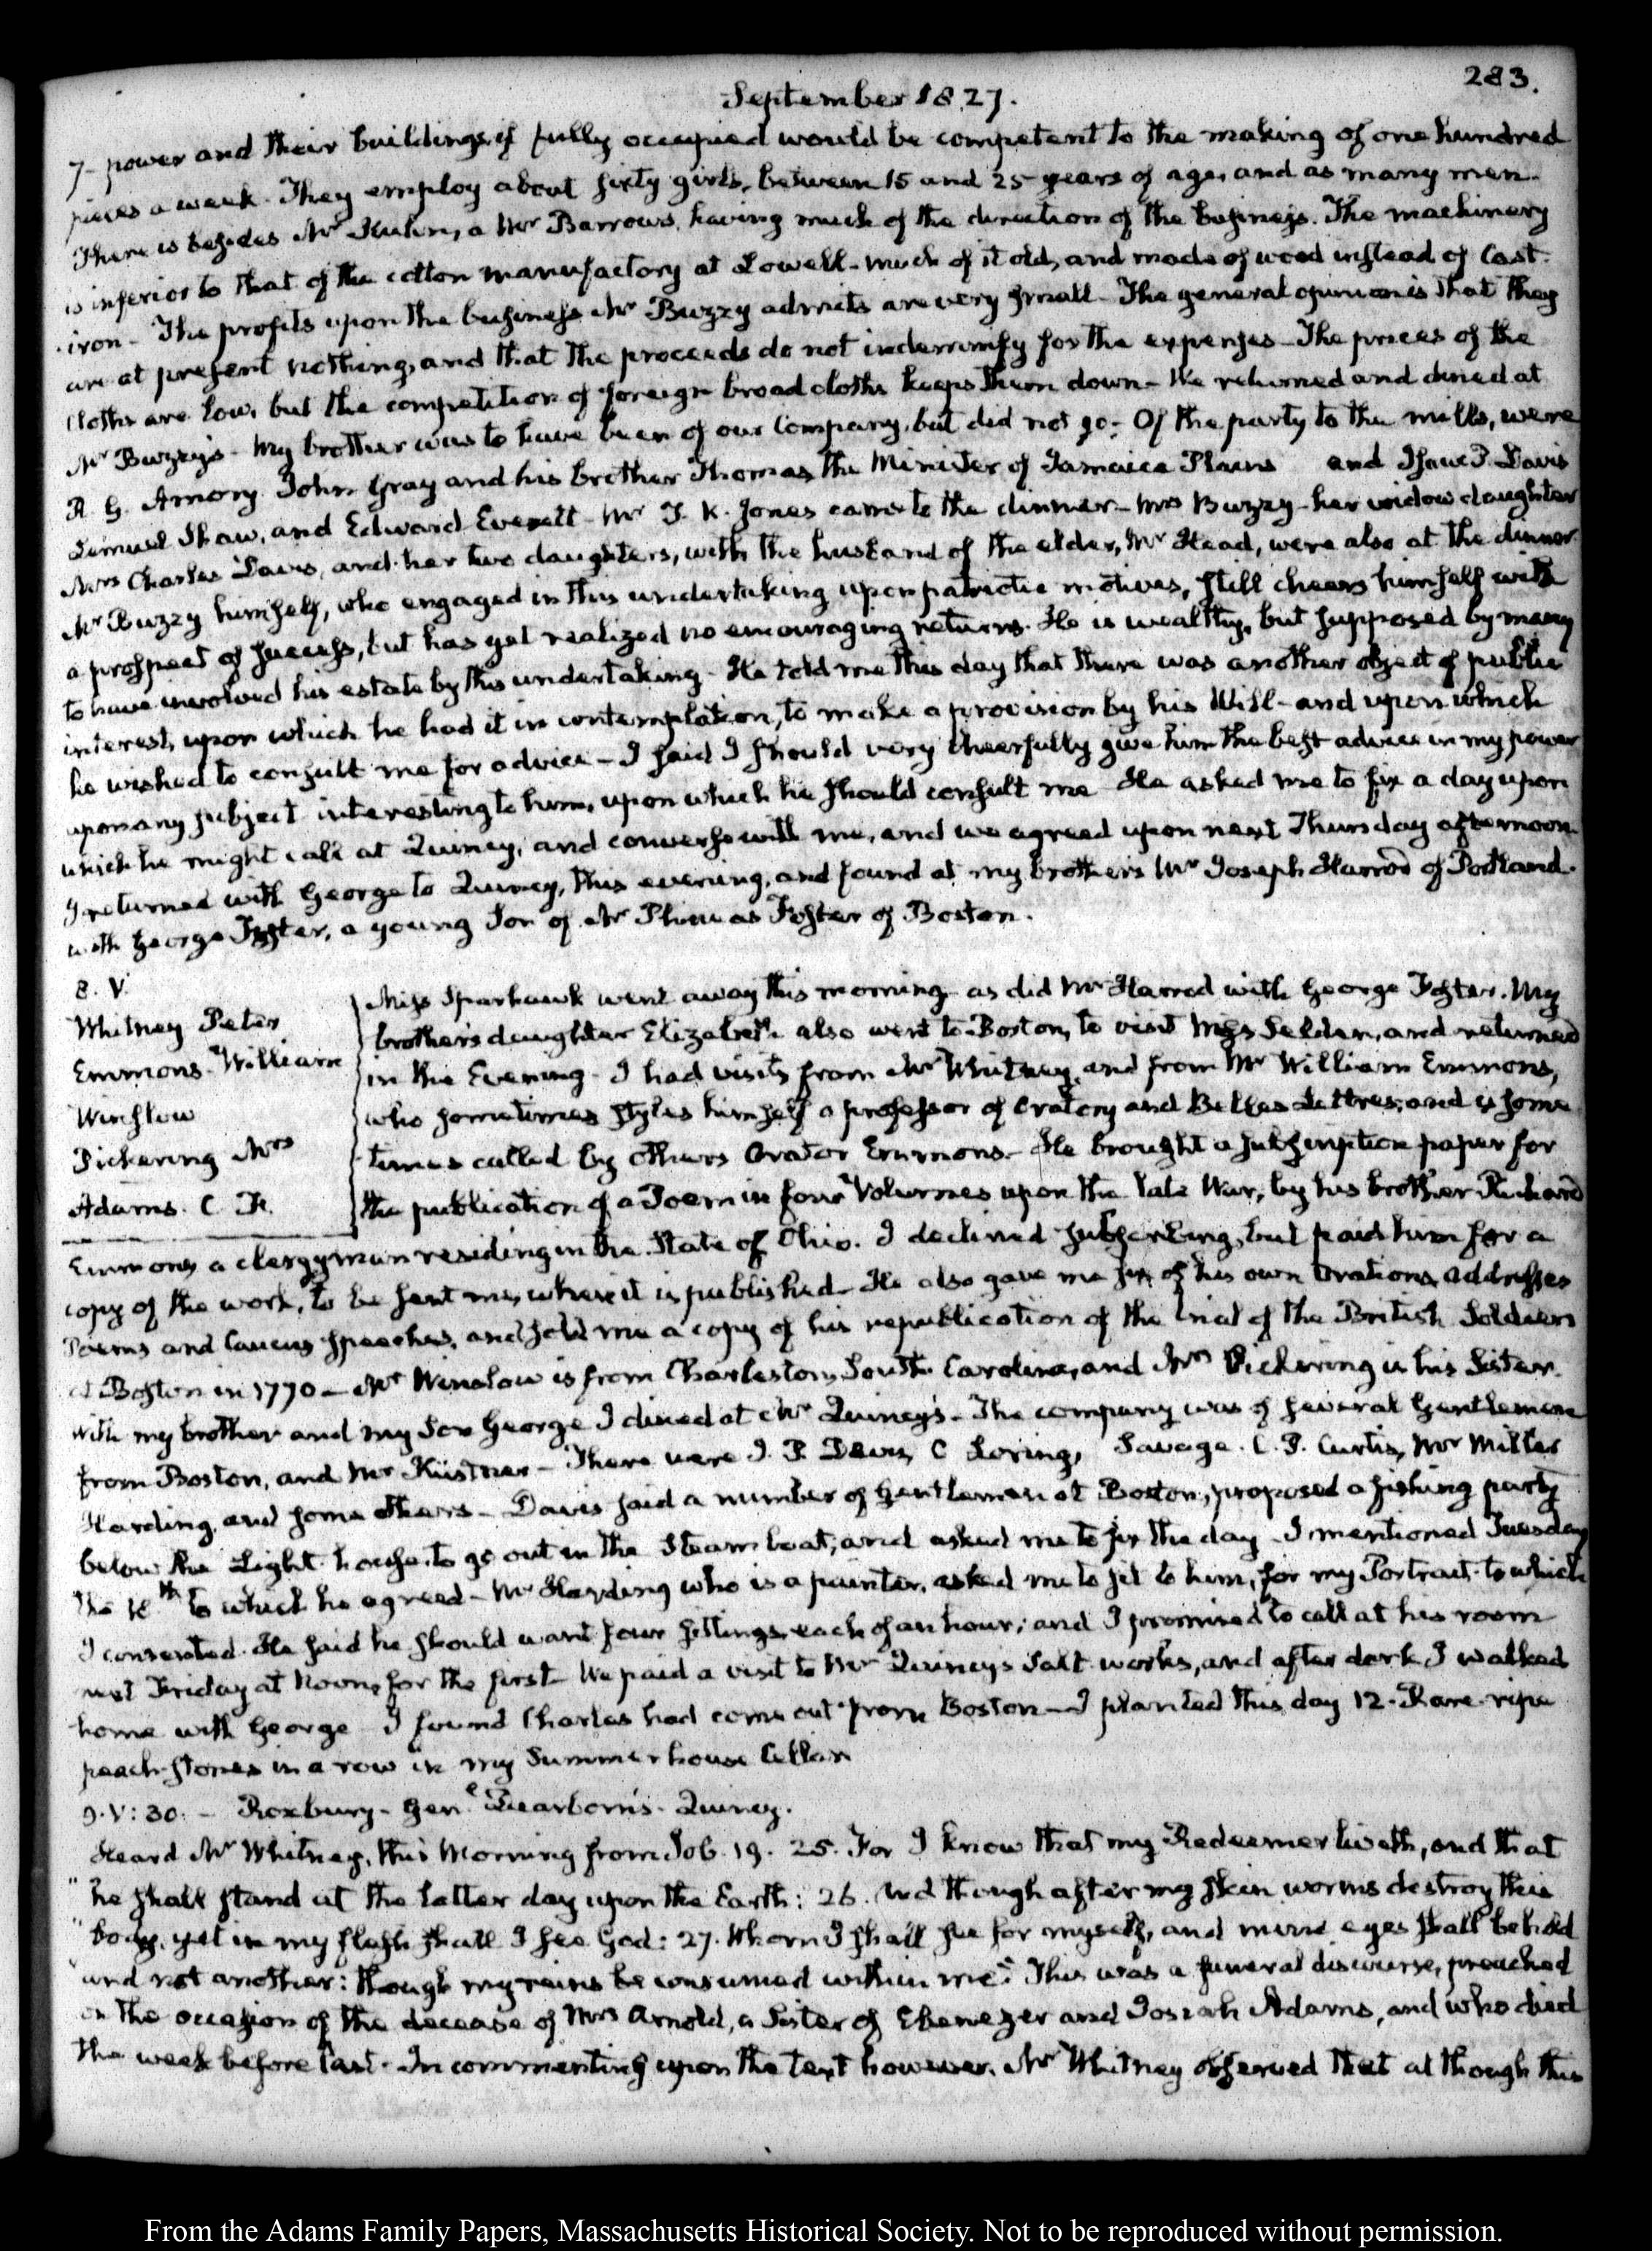 283.
September 1827.
7- power and their buildings, if fully occupied would be competent to the making of one hundred
pieces a week. They employ about sixty girls, between 15 and 25 years of age, and as many men.
There is besides Mr Kuhn, a Mr Barrows, having much of the direction of the business. The machinery
is inferior to that of the cotton manufactory at Lowell - much of it old, and made of wood instead of Cast-
iron - The profits upon the business Mr Buzzy admits are very small - The general opinion is that they
are at present nothing, and that the proceeds do not indemnify for the expenses - The prices of the
cloths are low, but the competition of foreign broad cloths keeps them down - We returned and dined at
Mr Buzzy's - My brother was to have been of our Company, but did not go - Of the party to the mills, were
R. G. Amory. John Gray and his brother Thomas the Minister of Jamaica Plains and Isaac P. Davis
Lemuel Shaw, and Edward Everett - Mr T. K. Jones came to the dinner - Mrs Buzzy - her widow daughter
Mrs Charles Davis, and her two daughters, with the husband of the elder, Mr Head, were also at the dinner.
Mr Buzzy himself, who engaged in this undertaking upon patriotic motives, still cheers himself with
a prospect of success, but has yet realized no encouraging returns. He is wealthy, but supposed by many
to have involved his estate by this undertaking - He told me this day that there was another object of public
interest, upon which he had it in contemplation, to make a provision by his Will - and upon which
he wished to consult me for advice - I said I should very cheerfully give him the best advice in my power
upon any subject interesting to him, upon which he should consult me He asked me to fix a day upon
which he might call at Quincy, and converse with me, and we agreed upon next Thursday afternoon.
I returned with George to Quincy, this evening, and found at my brother's Mr Joseph Harrod of Portland.
with George Foster, a young Son of Mr Phineas Foster of Boston.
8. V.
Whitney Peter
Emmons William
Winslow
Pickering Mrs
Adams. C. F.
Miss Sparhawk went away this morning as did Mr Harrod with George Foster. My
brother's daughter Elizabeth also went to Boston, to visit Miss Selden, and returned
in the Evening - I had visits from Mr Whitney, and from Mr William Emmons,
who sometimes styles himself a professor of Oratory and Belles Lettres, and is some
times called by others Orator Emmons - He brought a subscription paper for
the publication of a Poem in four Volumes upon the late War, by his brother Richard
Emmons, a clergyman residing in the State of Ohio. I declined subscribing, but paid him for a
copy of the work, to be sent me, when it is published - He also gave me six of his own Orations, addresses
Poems and Caucus Speeches, and sold me a copy of his republication of the trial of the British Soldiers
at Boston in 1770 - Mr Winslow is from Charleston, South Carolina, and Mrs Pickering is his Sister.
With my brother and my Son George I dined at Mr Quincy's - The company was of several Gentlemen
from Boston, and Mr Küstner - There were I. P. Davis, C Loring, Savage. C. P. Curtis, Mr Miller
Harding, and some others - Davis said a number of Gentlemen at Boston, proposed a fishing party
below the Light-house, to go out in the Steam boat, and asked me to fix the day - I mentioned Tuesday
the 18th to which he agreed - Mr Harding who is a painter, asked me to sit to him, for my Portrait to which
I consented. He said he should want four sittings, each of an hour; and I promised to call at his room
next Friday at Noon, for the first We paid a visit to Mr Quincy's Salt works, and after dark I walked
home with George I found Charles had come out from Boston - I planted this day 12. Rare-ripe
peach-stones in a row in my Summer house Cellar
9. V: 30. - Roxbury - Genl Dearborn's - Quincy.
Heard Mr Whitney, this Morning from Job. 19. 25. For I know that my Redeemer liveth, and that
" he shall stand at the latter day upon the Earth: 26. And though after my skin worms destroy this
" body, yet in my flesh shall I see God: 27. Whom I shall see for myself, and mine eyes shall behold
" and not another: though my reins be consumed within me." This was a funeral discourse, preached
on the occasion of the decease of Mrs Arnold, a Sister of Ebenezer and Josiah Adams, and who died
the week before last. In commenting upon the text however, Mr Whitney observed that although this
From the Adams Family Papers, Massachusetts Historical Society. Not to be reproduced without permission.